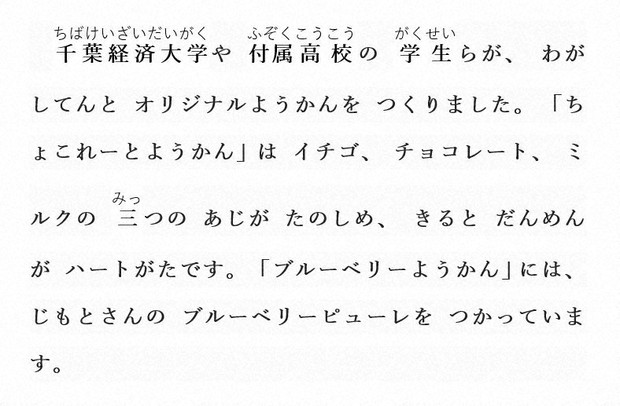 ちばけいざいだいがく ふぞくこうこう がくせい
千葉経済大学や 付属高校の 学生らが、 わが
してんと オリジナルようかんを つくりました。「ち
ょこれーとようかん」は イチゴ、 チョコレート、 ミ
みっ
ルクの 三つの あじが たのしめ、 きると だんめん
が ハートがたです。「ブルーベリーようかん」には、
じもとさんの ブルーベリーピューレを つかっていま
す。